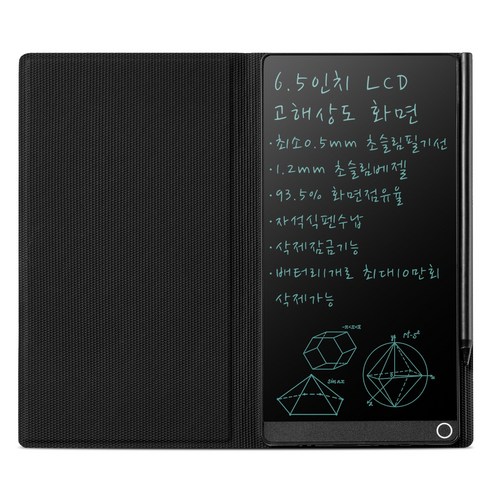 6.5인치 LCD
고해상도 화면
·최소0.5mm 초슬림필기선
·1.2mm 초슬림베젤
·93.5% 화면점유율
·자석식펜수납
·삭제잠금기능
·배터리1개로 최대10만회
삭제가능